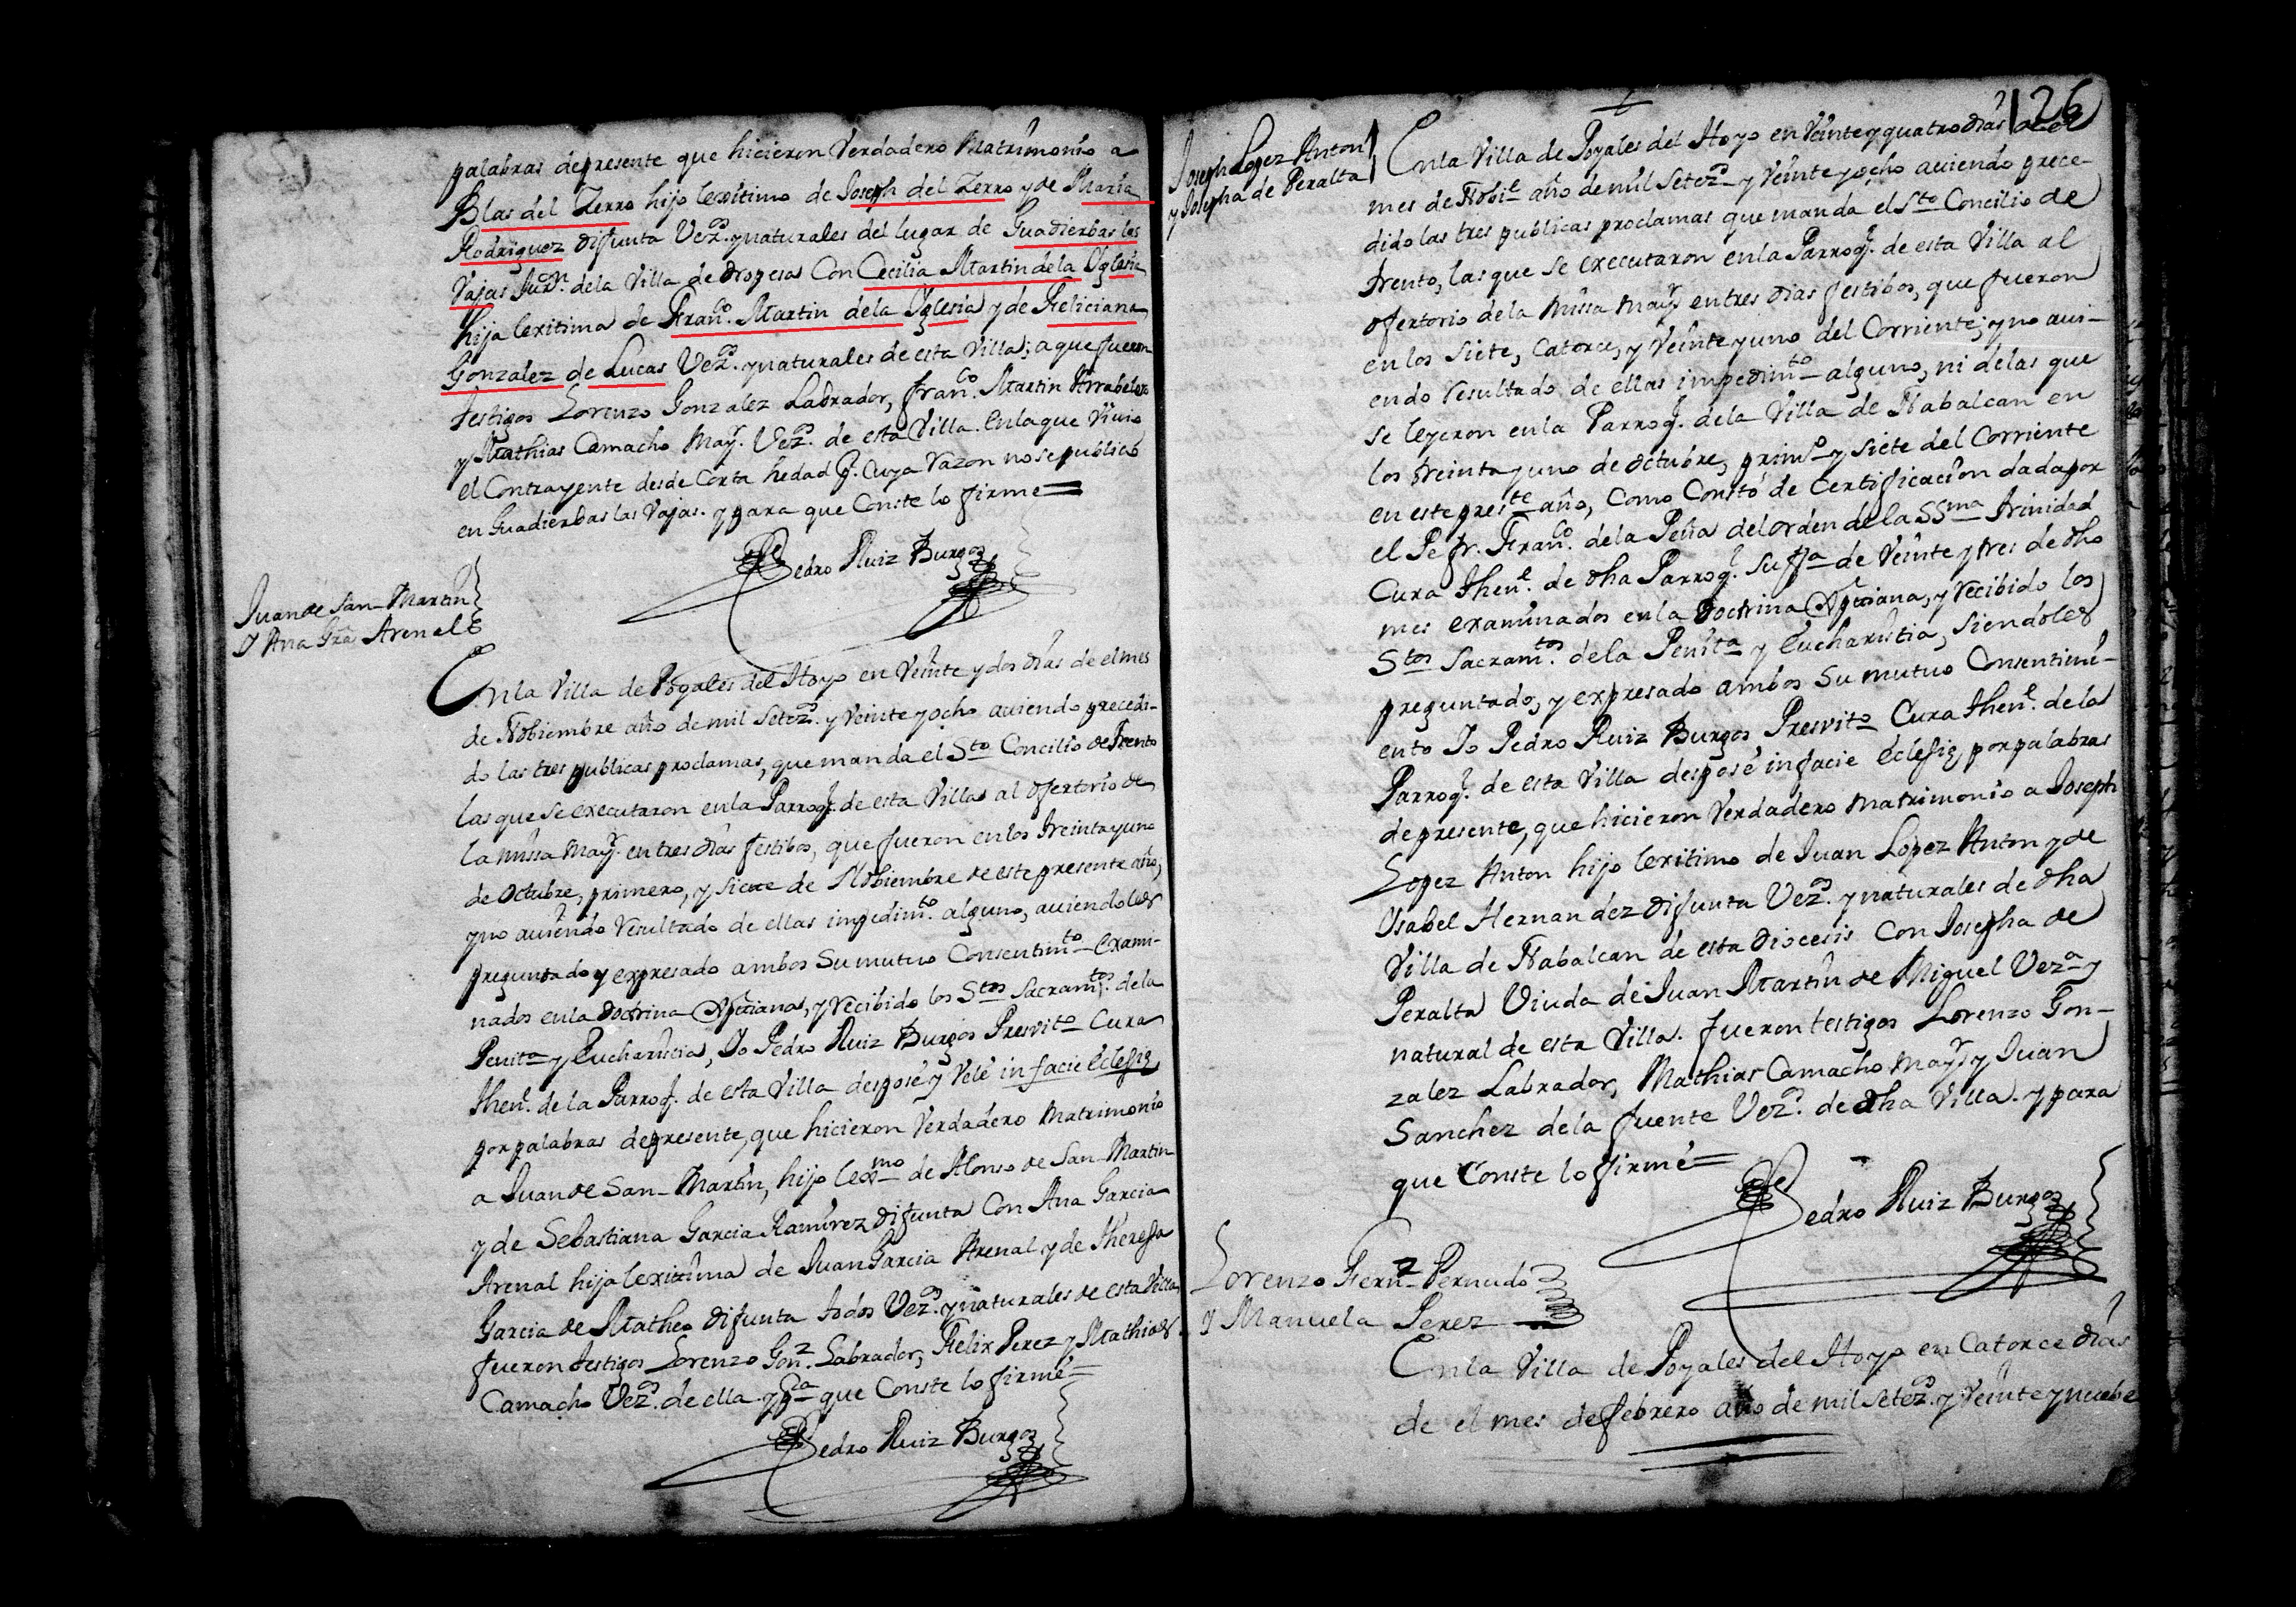 palabras depresente que hicieron Verdadero Matrimonio a
Blas del Zerro hijo lexitimo de Joseph del Zerro y de Maria
Rodriguez difunta Vez.os y naturales del lugar de Guadierbas las
Vajas Jur.on dela Villa de Oropesa Con Cecilia Martin dela Yglesia
hija lexitima de Fran.co Martin dela Yglesia y de Feliciana
Gonzalez de Lucas Vez.os y naturales de esta Villa; a que fueron
testigos Lorenzo Gonzalez Labrador, Fran.co Martin Arrabelero
y Mathias Camacho May.r Vez.os de esta Villa. Enlaque Vivio
el Contrayente desde Corta hedad p.r Cuya Razon no se publicó
en Guadierbas las Vajas. y para que Conste lo firme =
Pedro Ruiz Burgos
Juan de San Martin
y Ana Gra Arenal
En la Villa de Poyales del Hoyo en Veinte y dos dias de el mes
de Nobiembre año de mil Setez.os y Veinte y ocho aviendo precedi-
do las tres publicas proclamas, que manda el S.to Concilio de Trento
las que se executaron en la Parroq.l de esta Villa al ofertorio de
la missa May.r en tres dias festibos, que fueron en los treinta y uno
de Octubre, primero, y siete de Nobiembre de este presente año,
y no aviendo resultado de ellas impedim.to alguno, aviendoles
preguntado y expresado ambos Su mutuo Consentim.to exami-
nados en la Doctrina Xptiana, y recibido los S.tos Sacram.tos de la
Penit.a y Eucharistia, Yo Pedro Ruiz Burgos Presvit.o Cura
then.e de la Parroq.l de esta Villa desposé y Velé in facie Eclesię
por palabras depresente, que hicieron Verdadero Matrimonio
a Juan de San Martin, hijo lex.mo de Alonso de San Martin
y de Sebastiana Garcia Ramirez difunta Con Ana Garcia
Arenal hija lexitima de Juan Garcia Arenal y de Theresa
Garcia de Matheo difunta todos Vez.os y naturales de esta Villa
fueron testigos Lorenzo Gon.z Labrador, Felix Perez y Mathias
Camacho Vez.os de ella y p.a que Conste lo firmé =
Pedro Ruiz Burgos
126
Joseph Lopez Anton
y Josepha de Peralta
En la Villa de Poyales del Hoyo en Veinte y quatro dias de el
mes de Nobi.e año de mil Setez.os y Veinte y ocho aviendo prece-
dido las tres publicas proclamas que manda el S.to Concilio de
trento, las que se executaron en la Parroq.l de esta Villa al
ofertorio de la missa May.r en tres dias festibos, que fueron
en los siete, Catorce, y Veinte y uno del Corriente; y no avi-
endo resultado de ellas impedim.to alguno, ni de las que
se leyeron en la Parroq.l de la Villa de Nabalcan en
los treinta y uno de Octubre, prim.o y siete del Corriente
en este pres.te año, Como Constó de Certificacion dada por
el Pe fr. Fran.co de la Peña del orden de la SS.ma trinidad
Cura then.e de dha Parroq.l Su f.ha de Veinte y tres de dho
mes examinados en la Doctrina Xptiana, y recibido los
S.tos Sacram.tos de la Penit.a y Eucharistia, siendoles
preguntado, y expresado ambos Su mutuo Consentimi-
ento Yo Pedro Ruiz Burgos Presvit.o Cura then.e de la
Parroq.l de esta Villa desposé in facie Eclesię, por palabras
depresente, que hicieron Verdadero Matrimonio a Joseph
Lopez Anton hijo lexitimo de Juan Lopez Anton y de
Ysabel Hernandez difunta Vez.os y naturales de dha
Villa de Nabalcan de esta Diocesis Con Josepha de
Peralta Viuda de Juan Martin de Miguel Vez.a y
natural de esta Villa. fueron testigos Lorenzo Gon-
zalez Labrador, Mathias Camacho May.r y Juan
Sanchez de la fuente Vez.os de dha Villa. y para
que Conste lo firmé =
Pedro Ruiz Burgos
Lorenzo Fern.z Pernudo
y Manuela Perez
En la Villa de Poyales del Hoyo en Catorce dias
de el mes de febrero año de mil Setez.os y Veinte y nuebe